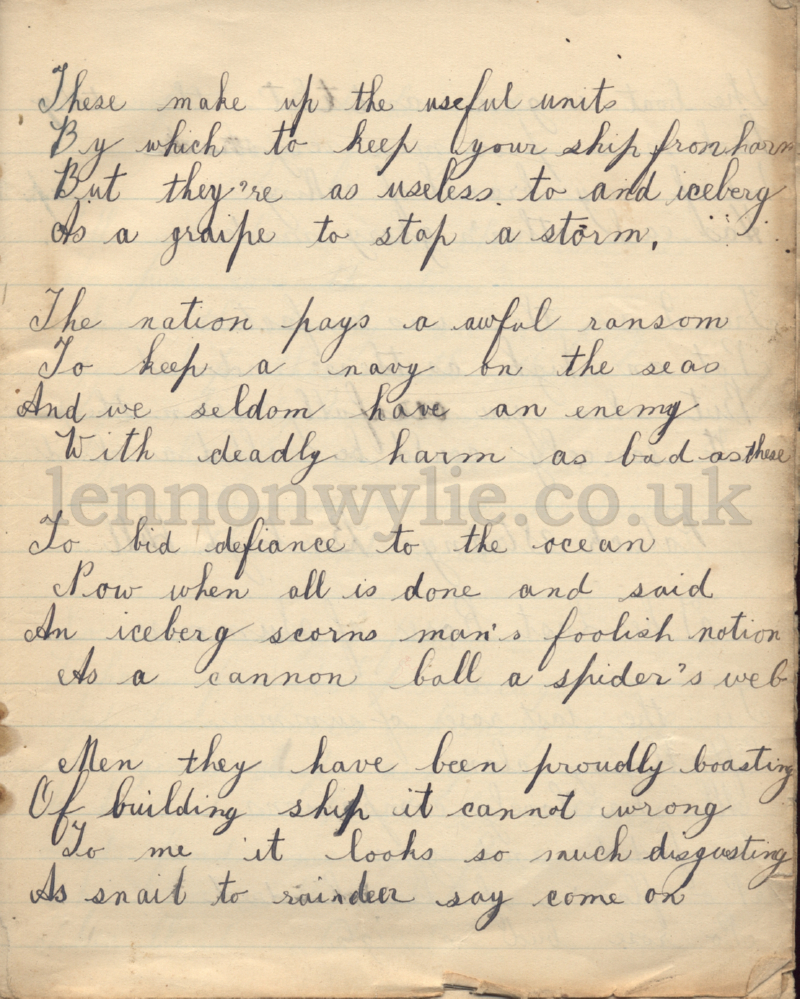 These make up the useful units
By which to keep your ship from harm
But they're as useless to and iceberg
As a graipe to stop a storm.
The nation pays a awful ransom
To keep a navy on the seas
And we seldom have an enemy
With deadly harm as bad as these
lennonwylie.co.uk
To bid defiance to the ocean
Now when all is done and said
An iceberg scorns man's foolish notion
As a cannon ball a spider's web
Men they have been proudly boasting
Of building ship it cannot wrong
To me it looks so much disgusting
As snail to raindeer say come on